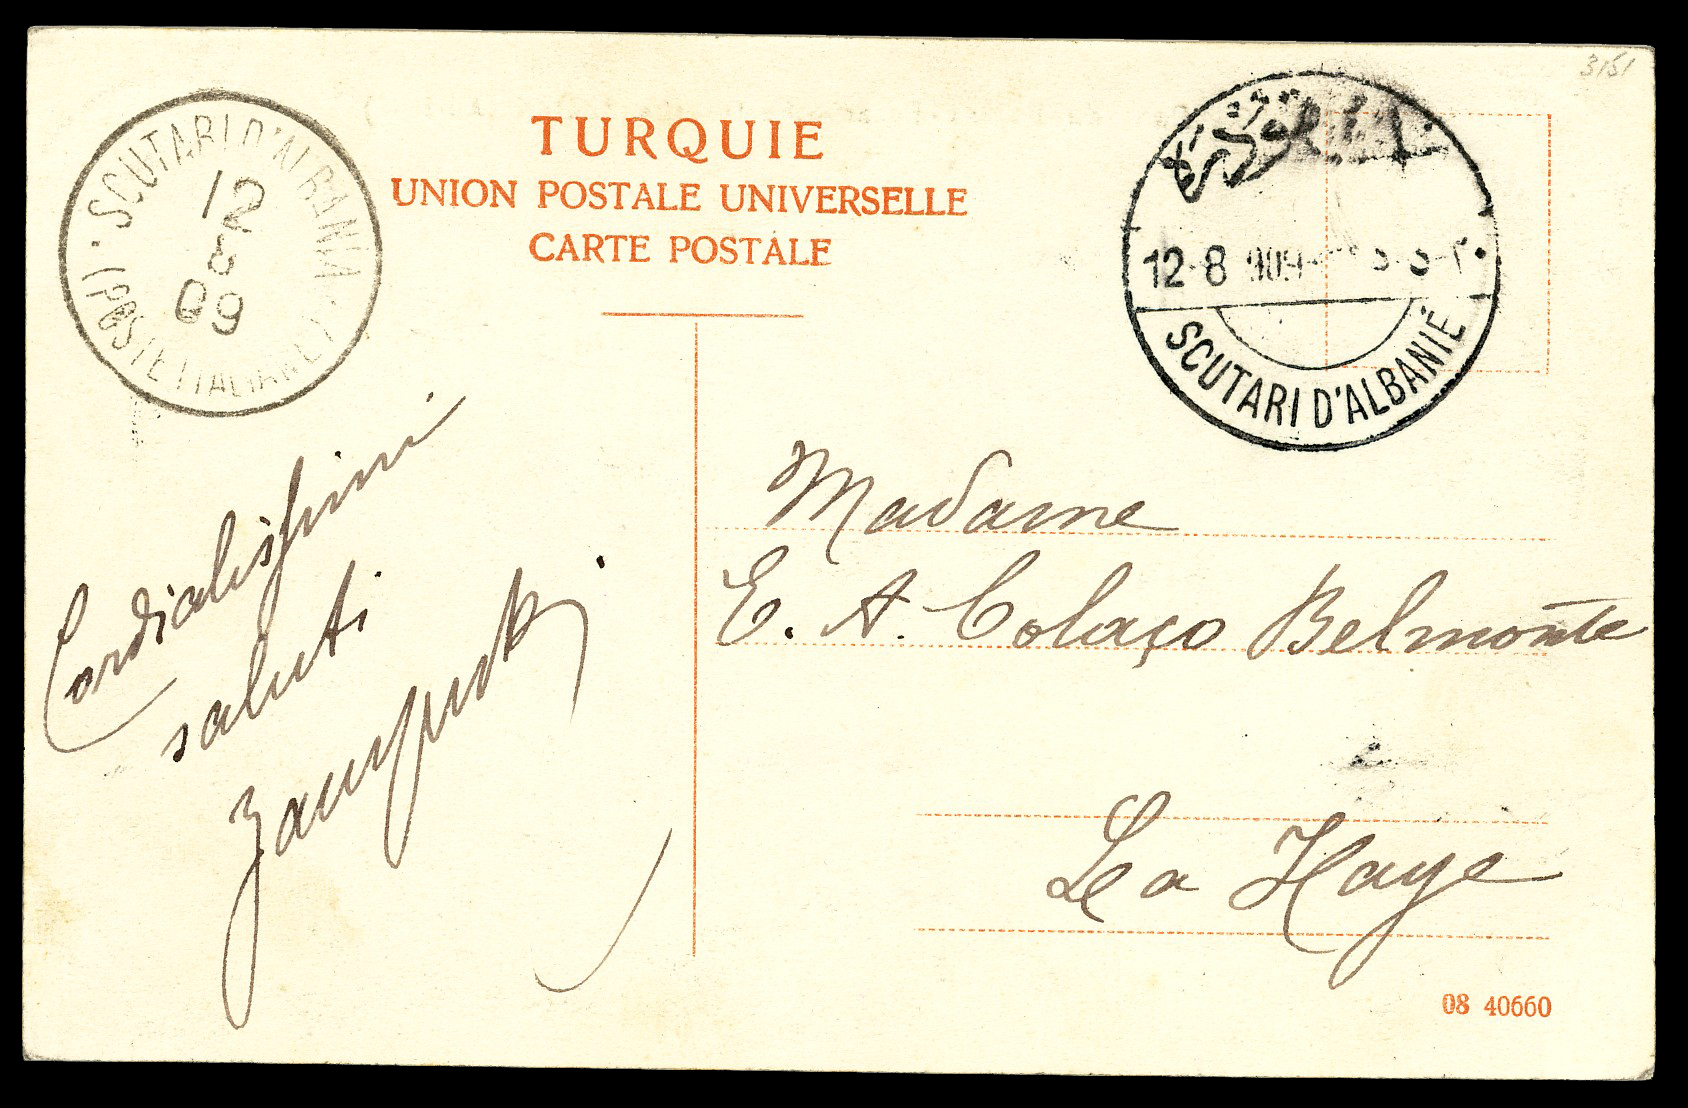 3151
TURQUIE
UNION POSTALE UNIVERSELLE
CARTE POSTALE
SCUTARI D'ALBANIA
12
8
09
(POSTE ITALIANE)
12-8 909
SCUTARI D'ALBANIE
Cordialissimi
saluti
Madame
E. A. Colaço Belmonte
La Haye
08 40660